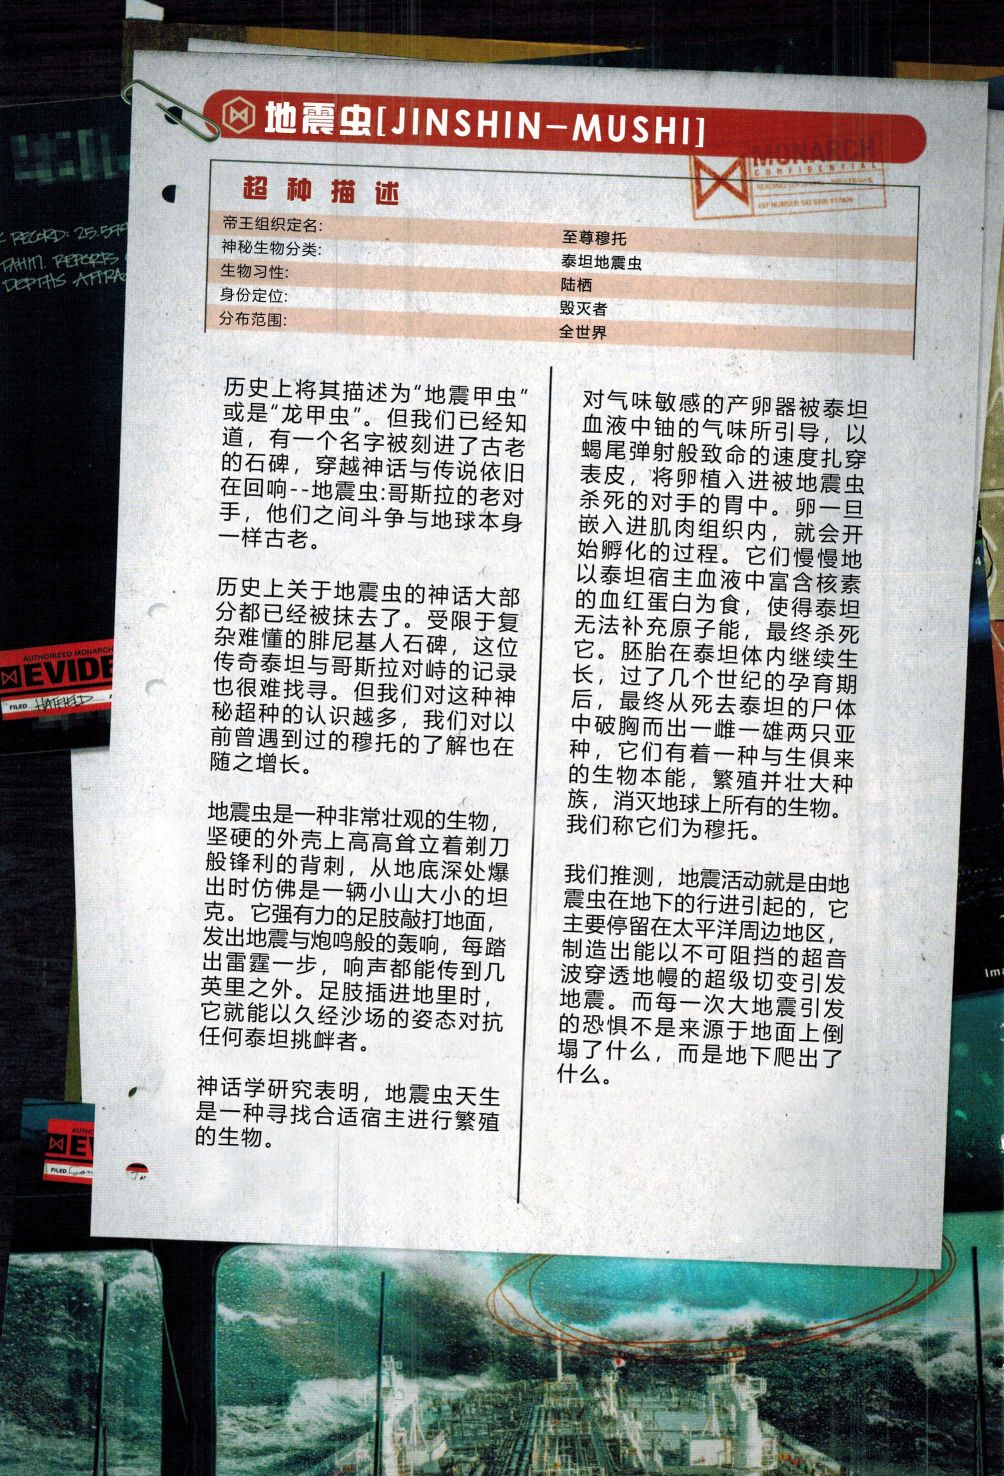 地震虫[JINSHIN-MUSHI]
MONARCH
CONFIDENTIAL
超种描述
帝王组织定名:
至尊穆托
神秘生物分类:
泰坦地震虫
生物习性:
陆栖
身份定位:
毁灭者
分布范围:
全世界
历史上将其描述为“地震甲虫”
或是“龙甲虫”。但我们已经知
道，有一个名字被刻进了古老
的石碑，穿越神话与传说依旧
在回响--地震虫:哥斯拉的老对
手，他们之间斗争与地球本身
一样古老。
历史上关于地震虫的神话大部
分都已经被抹去了。受限于复
杂难懂的腓尼基人石碑，这位
传奇泰坦与哥斯拉对峙的记录
也很难找寻。但我们对这种神
秘超种的认识越多，我们对以
前曾遇到过的穆托的了解也在
随之增长。
地震虫是一种非常壮观的生物，
坚硬的外壳上高高耸立着剃刀
般锋利的背刺，从地底深处爆
出时仿佛是一辆小山大小的坦
克。它强有力的足肢敲打地面，
发出地震与炮鸣般的轰响，每踏
出雷霆一步，响声都能传到几
英里之外。足肢插进地里时，
它就能以久经沙场的姿态对抗
任何泰坦挑衅者。
神话学研究表明，地震虫天生
是一种寻找合适宿主进行繁殖
的生物。
对气味敏感的产卵器被泰坦
血液中铀的气味所引导，以
蝎尾弹射般致命的速度扎穿
表皮，将卵植入进被地震虫
杀死的对手的胃中。卵一旦
嵌入进肌肉组织内，就会开
始孵化的过程。它们慢慢地
以泰坦宿主血液中富含核素
的血红蛋白为食，使得泰坦
无法补充原子能，最终杀死
它。胚胎在泰坦体内继续生
长，过了几个世纪的孕育期
后，最终从死去泰坦的尸体
中破胸而出一雌一雄两只亚
种，它们有着一种与生俱来
的生物本能，繁殖并壮大种
族，消灭地球上所有的生物。
我们称它们为穆托。
我们推测，地震活动就是由地
震虫在地下的行进引起的，它
主要停留在太平洋周边地区，
制造出能以不可阻挡的超音
波穿透地幔的超级切变引发
地震。而每一次大地震引发
的恐惧不是来源于地面上倒
塌了什么，而是地下爬出了
什么。
RECORD: 25.5
TAHITI. REPORTS
DEPTHS ATTRA
AUTHORIZED MONARCH
EVIDE
FILED HATFIELD
FILED